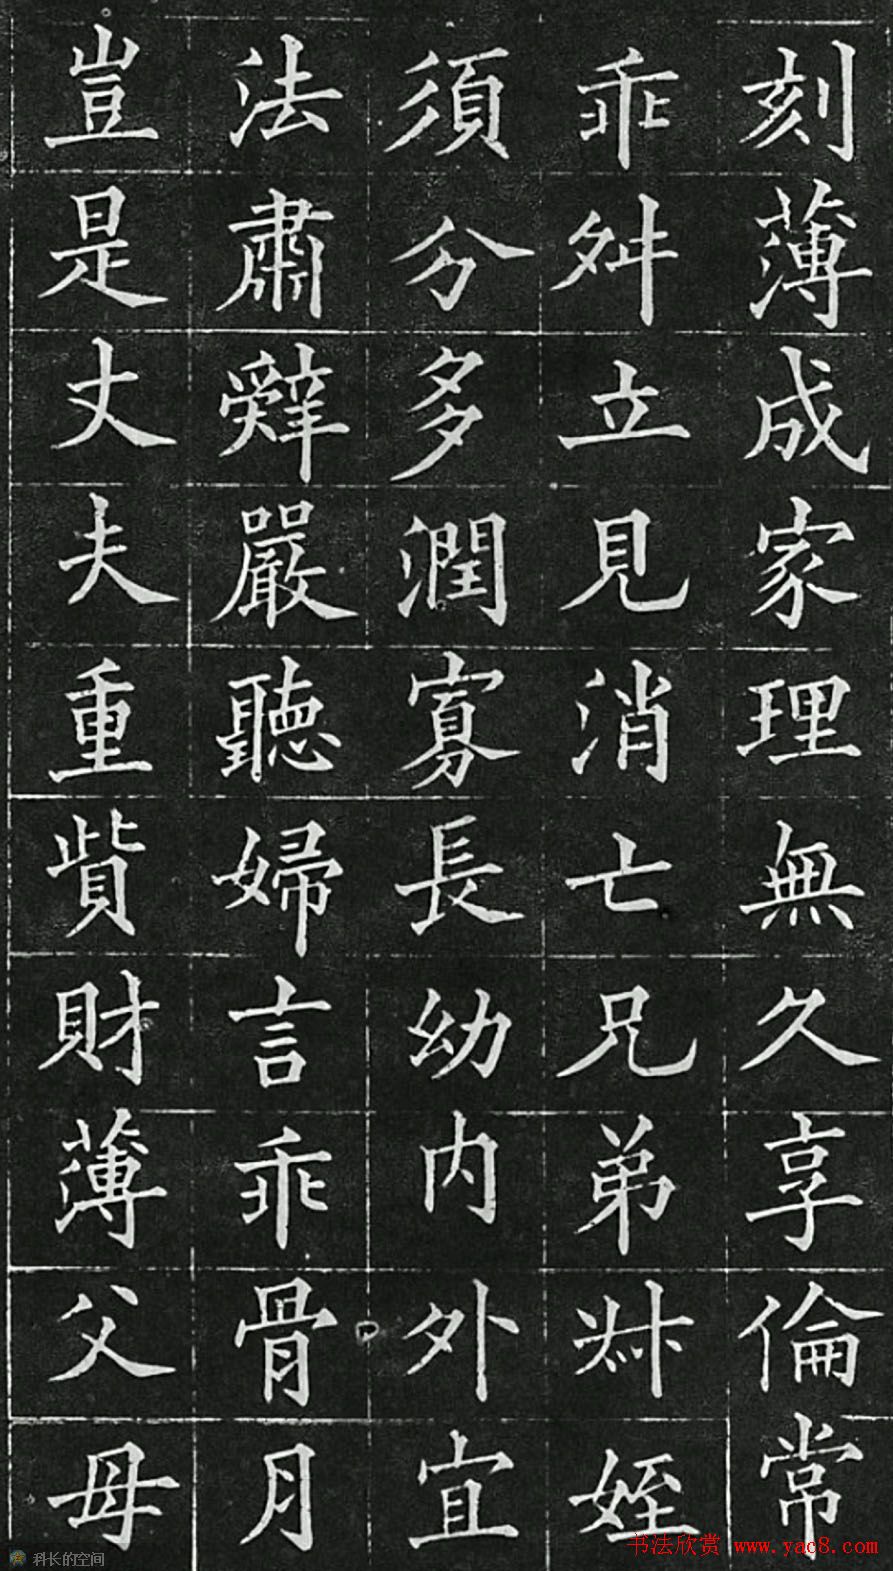 刻薄成家理無久享倫常
乖舛立見消亡兄弟叔姪
須分多潤寡長幼内外宜
法肅辤嚴聽婦言乖骨月
豈是丈夫重貲財薄父母
科长的空间
书法欣赏 www.yac8.com